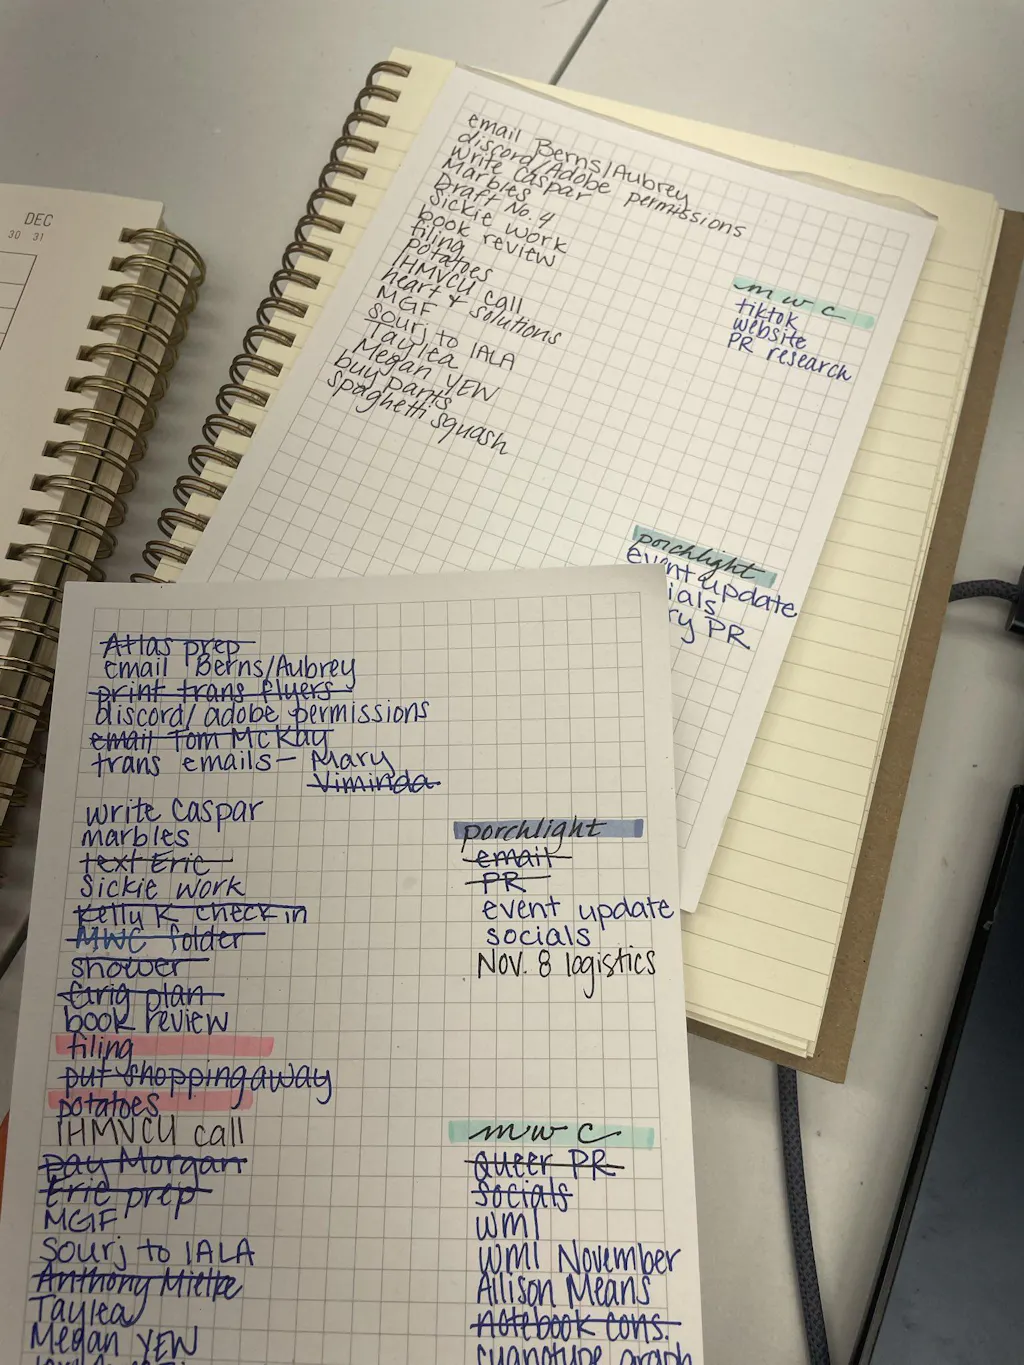 DEC
30 31
email Berns/Aubrey
discord/Adobe permissions
write Caspar
Marbles
Draft No. 4
Sickie work
book review
filing
potatoes
IHMVCU call
heart & solutions
MGF
sourj to IALA
Taylea
Megan YEW
buy pants
spaghetti squash
m w c
tiktok
website
PR research
porchlight
event update
ials
ry PR
Atlas prep
email Berns/Aubrey
print trans flyers
discord/adobe permissions
email Tom McKay
trans emails- Mary
Viminda
write Caspar
marbles
text Eric
Sickie work
Kelly K check in
MWC folder
shower
plan
book review
filing
put shopping away
potatoes
IHMVCU call
pay Morgan
Eric prep
MGF
sourj to IALA
Anthony Mielke
Taylea
Megan YEW
porchlight
email
PR
event update
socials
Nov. 8 logistics
m w c
Queer PR
socials
WMI
WMI November
Allison Means
notebook cons.
cyanotype graph